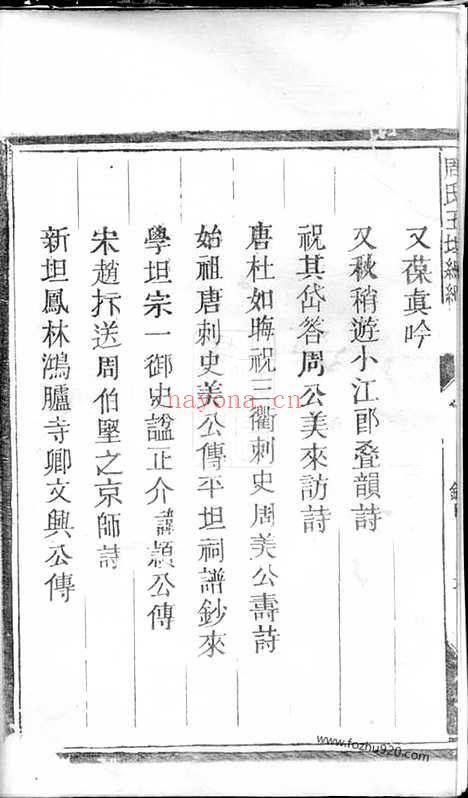 又葆真吟
又秋稍遊小江郎叠韻詩
祝其岱答周公美來訪詩
唐杜如晦祝三衢刺史周美公壽詩
始祖唐刺史美公傳平坦祠譜鈔來
學坦宗一御史諡正介諱穎公傳
宋趙抃送周伯堅之京師詩
新坦鳳林鴻臚寺卿文興公傳
hayona.cn
www.fozhu920.com